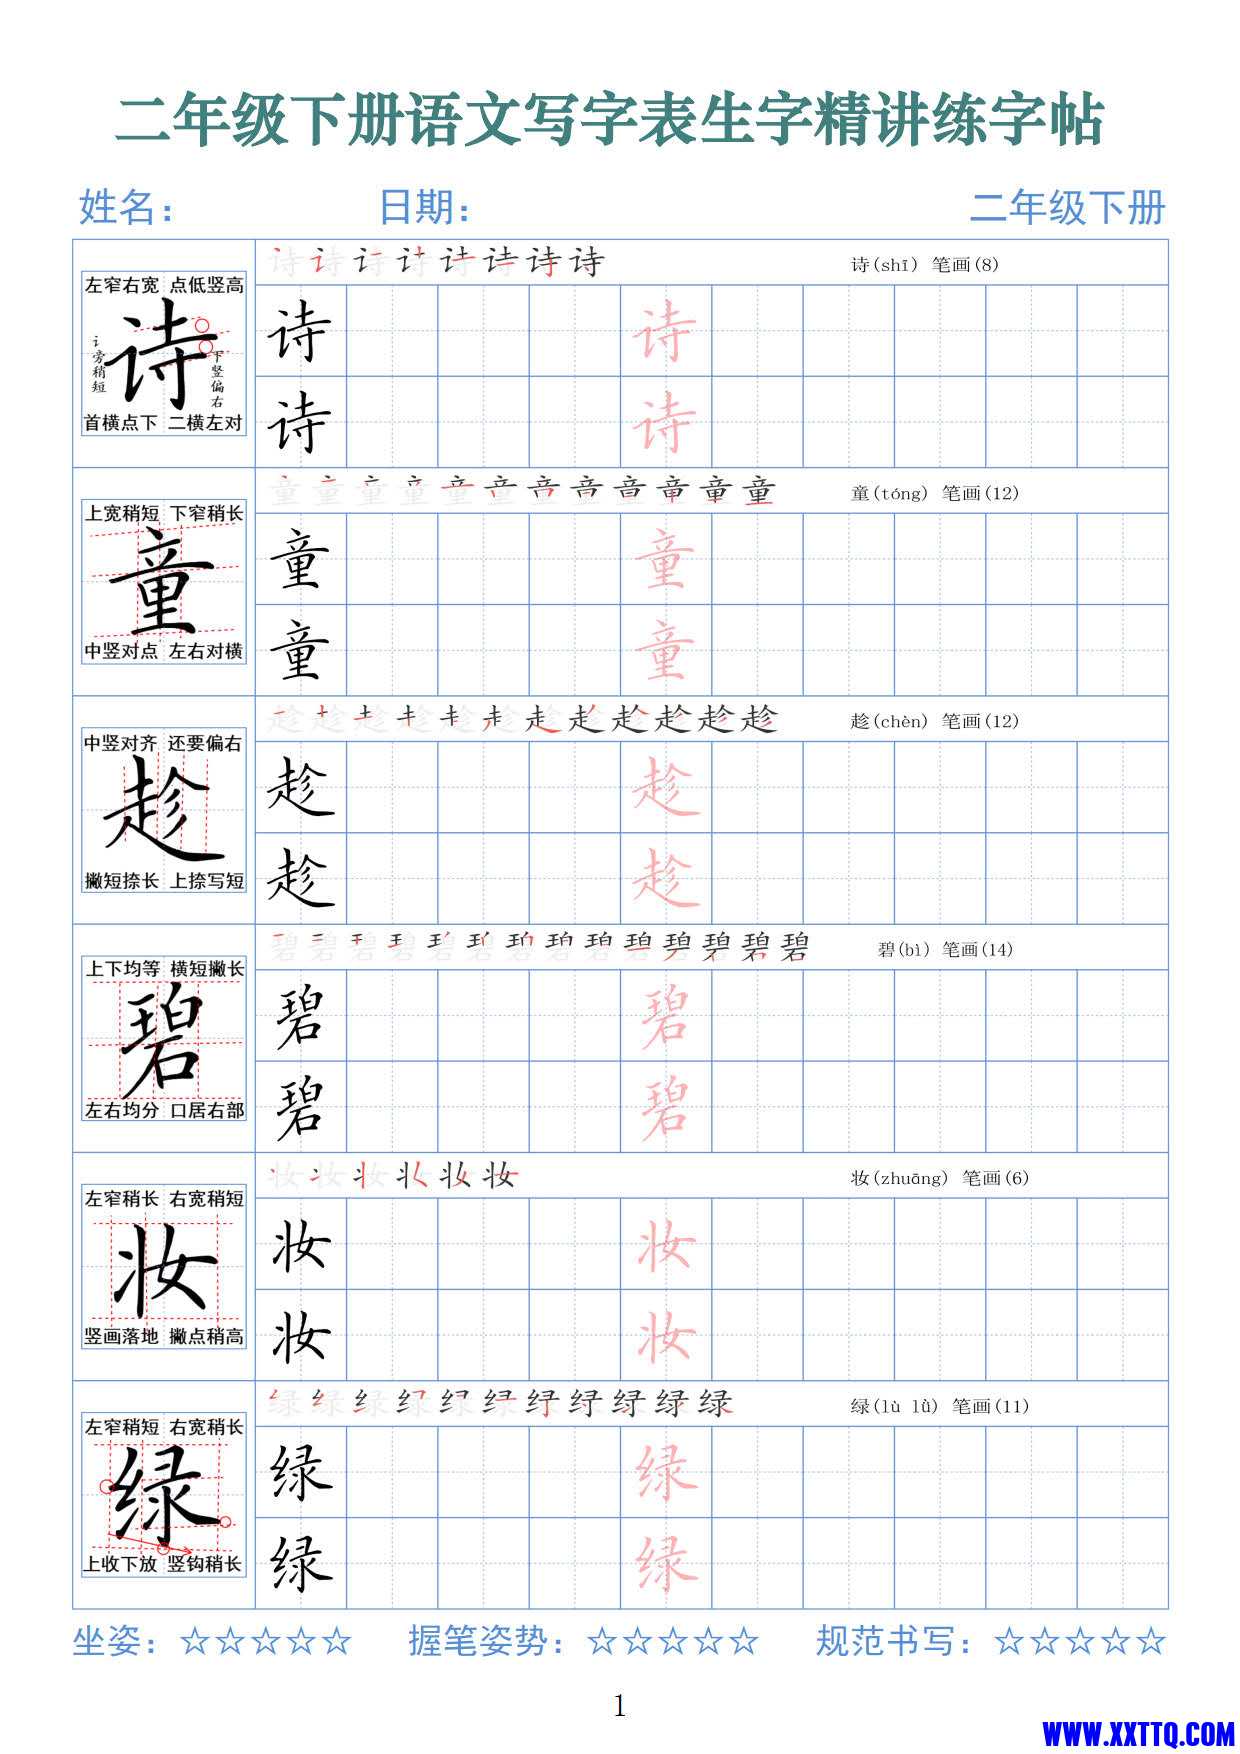 二年级下册语文写字表生字精讲练字帖
姓名： 日期： 二年级下册
诗 诗 诗 诗 诗 诗 诗 诗 诗(shī) 笔画(8)
左窄右宽 点低竖高
诗
讠旁稍短
下竖偏右
首横点下 二横左对
诗 诗
诗 诗
童 童 童 童 童 童 童 童 童 童 童 童 童(tóng) 笔画(12)
上宽稍短 下窄稍长
童
中竖对点 左右对横
童 童
童 童
趁 趁 趁 趁 趁 趁 趁 趁 趁 趁 趁 趁 趁(chèn) 笔画(12)
中竖对齐 还要偏右
趁
撇短捺长 上捺写短
趁 趁
趁 趁
碧 碧 碧 碧 碧 碧 碧 碧 碧 碧 碧 碧 碧 碧 碧(bì) 笔画(14)
上下均等 横短撇长
碧
左右均分 口居右部
碧 碧
碧 碧
妆 妆 妆 妆 妆 妆 妆(zhuāng) 笔画(6)
左窄稍长 右宽稍短
妆
竖画落地 撇点稍高
妆 妆
妆 妆
绿 绿 绿 绿 绿 绿 绿 绿 绿 绿 绿 绿(lù lǜ) 笔画(11)
左窄稍短 右宽稍长
绿
上收下放 竖钩稍长
绿 绿
绿 绿
坐姿：☆☆☆☆☆ 握笔姿势：☆☆☆☆☆ 规范书写：☆☆☆☆☆
1
WWW.XXTTQ.COM